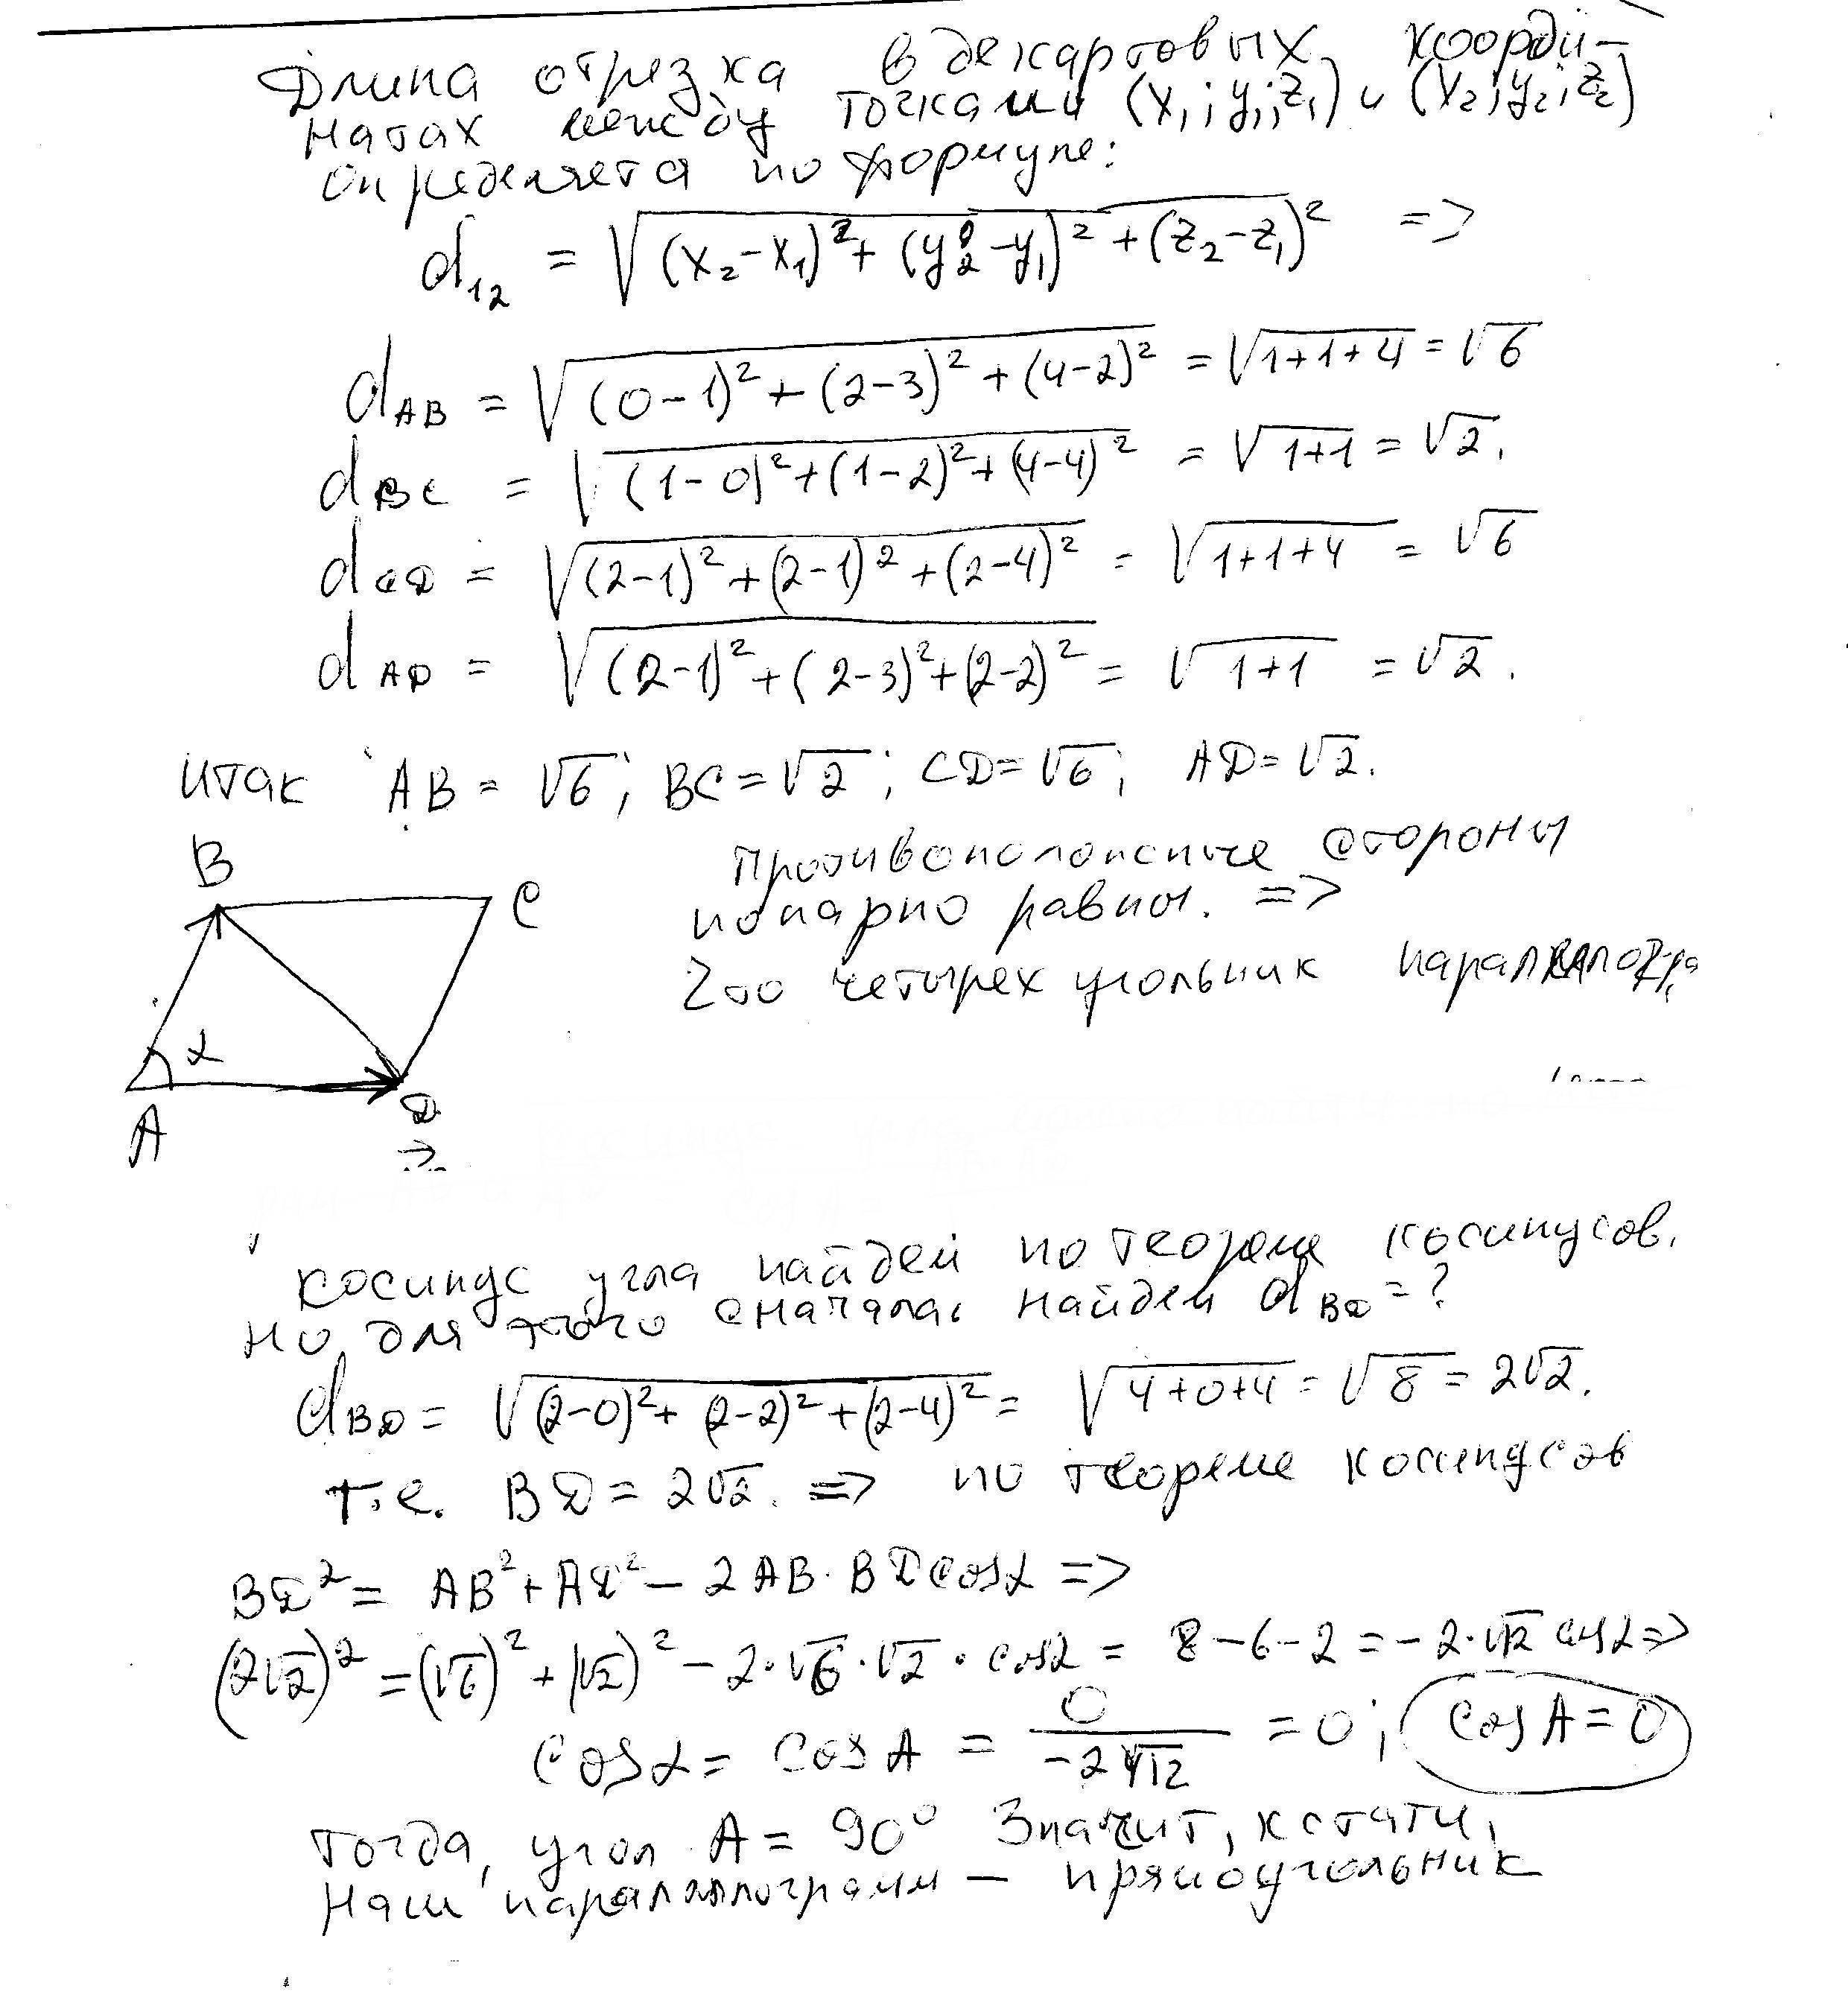 Длина отрезка в декартовых коорди-
натах между точками (x₁; y₁; z₁) и (x₂; y₂; z₂)
определяется по формуле:
d₁₂ = √((x₂ − x₁)² + (y₂ − y₁)² + (z₂ − z₁)²) =>
d_AB = √((0 − 1)² + (2 − 3)² + (4 − 2)²) = √(1+1+4) = √6
d_BC = √((1 − 0)² + (1 − 2)² + (4 − 4)²) = √(1+1) = √2.
d_CD = √((2 − 1)² + (2 − 1)² + (2 − 4)²) = √(1+1+4) = √6
d_AD = √((2 − 1)² + (2 − 3)² + (2 − 2)²) = √(1+1) = √2.
Итак AB = √6; BC = √2; CD = √6; AD = √2.
Противоположные стороны
попарно равны. =>
Это четырехугольник
B
C
α
A
D
косинус угла найдем по теореме косинусов.
Но для этого сначала найдем d_BD = ?
d_BD = √((2 − 0)² + (2 − 2)² + (2 − 4)²) = √(4+0+4) = √8 = 2√2.
т.е. BD = 2√2. => по теореме косинусов
BD² = AB² + AD² − 2AB · BD cosα =>
(2√2)² = (√6)² + (√2)² − 2·√6·√2·cosα = 8 − 6 − 2 = −2·√12 cosα =>
cosα = cosA = 0/(−2√12) = 0; cosA = 0
тогда, угол A = 90° Значит, кстати,
наш параллелограмм — прямоугольник